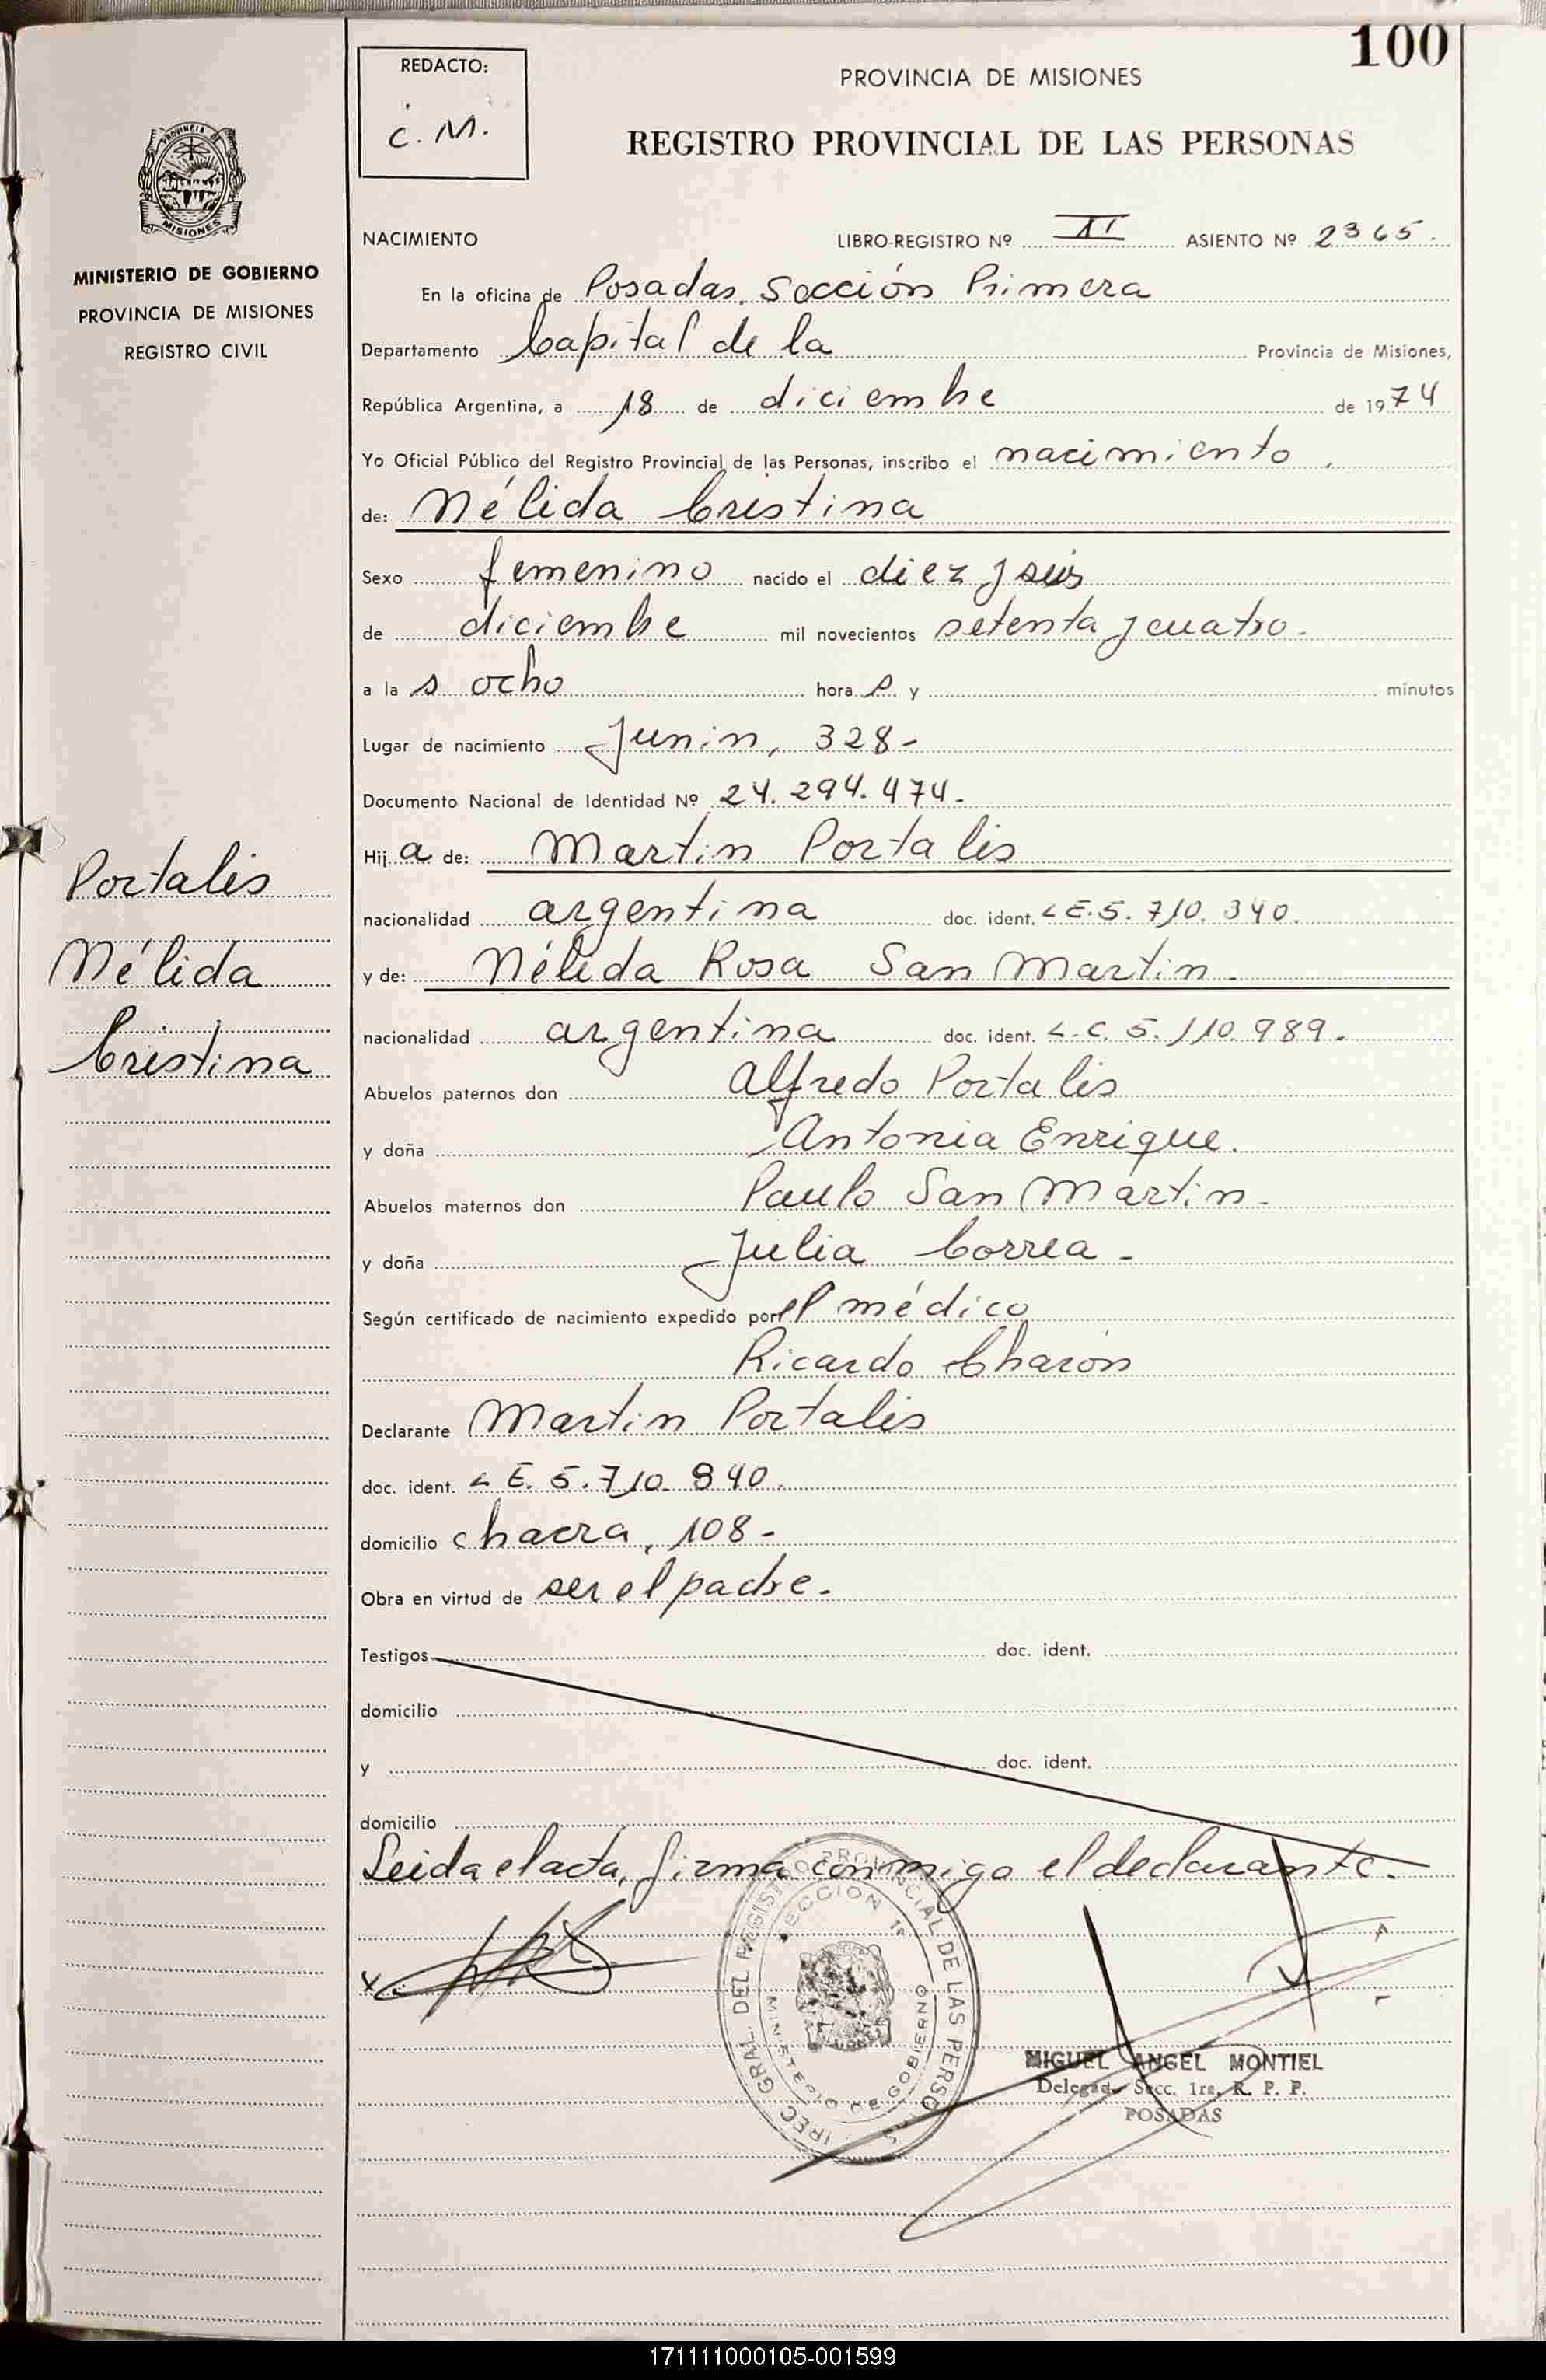 100
REDACTO:
C. M.
PROVINCIA DE MISIONES
REGISTRO PROVINCIAL DE LAS PERSONAS
PROVINCIA DE
MISIONES
MINISTERIO DE GOBIERNO
PROVINCIA DE MISIONES
REGISTRO CIVIL
Portalis
Nélida
Cristina
NACIMIENTO LIBRO-REGISTRO Nº ASIENTO Nº 2365.
En la oficina de Posadas, Sección Primera
Departamento Capital de la Provincia de Misiones,
República Argentina, a 18 de diciembre de 1974
Yo Oficial Público del Registro Provincial de las Personas, inscribo el nacimiento
de: Nélida Cristina
Sexo femenino nacido el diez y seis
de diciembre mil novecientos setenta y cuatro.
a la s ocho hora s y minutos
Lugar de nacimiento Junin, 328-
Documento Nacional de Identidad Nº 24.294.474.
Hij a de: Martin Portalis
nacionalidad argentina doc. ident. L E. 5.710.
y de: Nélida Rosa San Martin.
nacionalidad argentina doc. ident. L.C. 5.110.989.
Abuelos paternos don Alfredo Portalis
y doña Antonia Enrique.
Abuelos maternos don Paulo San Martin.
y doña Julia Correa -
Según certificado de nacimiento expedido por el médico
Ricardo Charón
Declarante Martin Portalis
doc. ident. L E. 5.710.
domicilio chacra, 108-
Obra en virtud de ser el padre.
Testigos doc. ident.
domicilio
y doc. ident.
domicilio
Leida el acta, firma conmigo el declarante.
DEL REGISTRO PROVINCIAL DE LAS PERSO
SECCION 1ª
MINISTERIO DE GOBIERNO
MIGUEL ANGEL MONTIEL
Delegado Secc. 1ra. R. P. P.
POSADAS
171111000105-001599